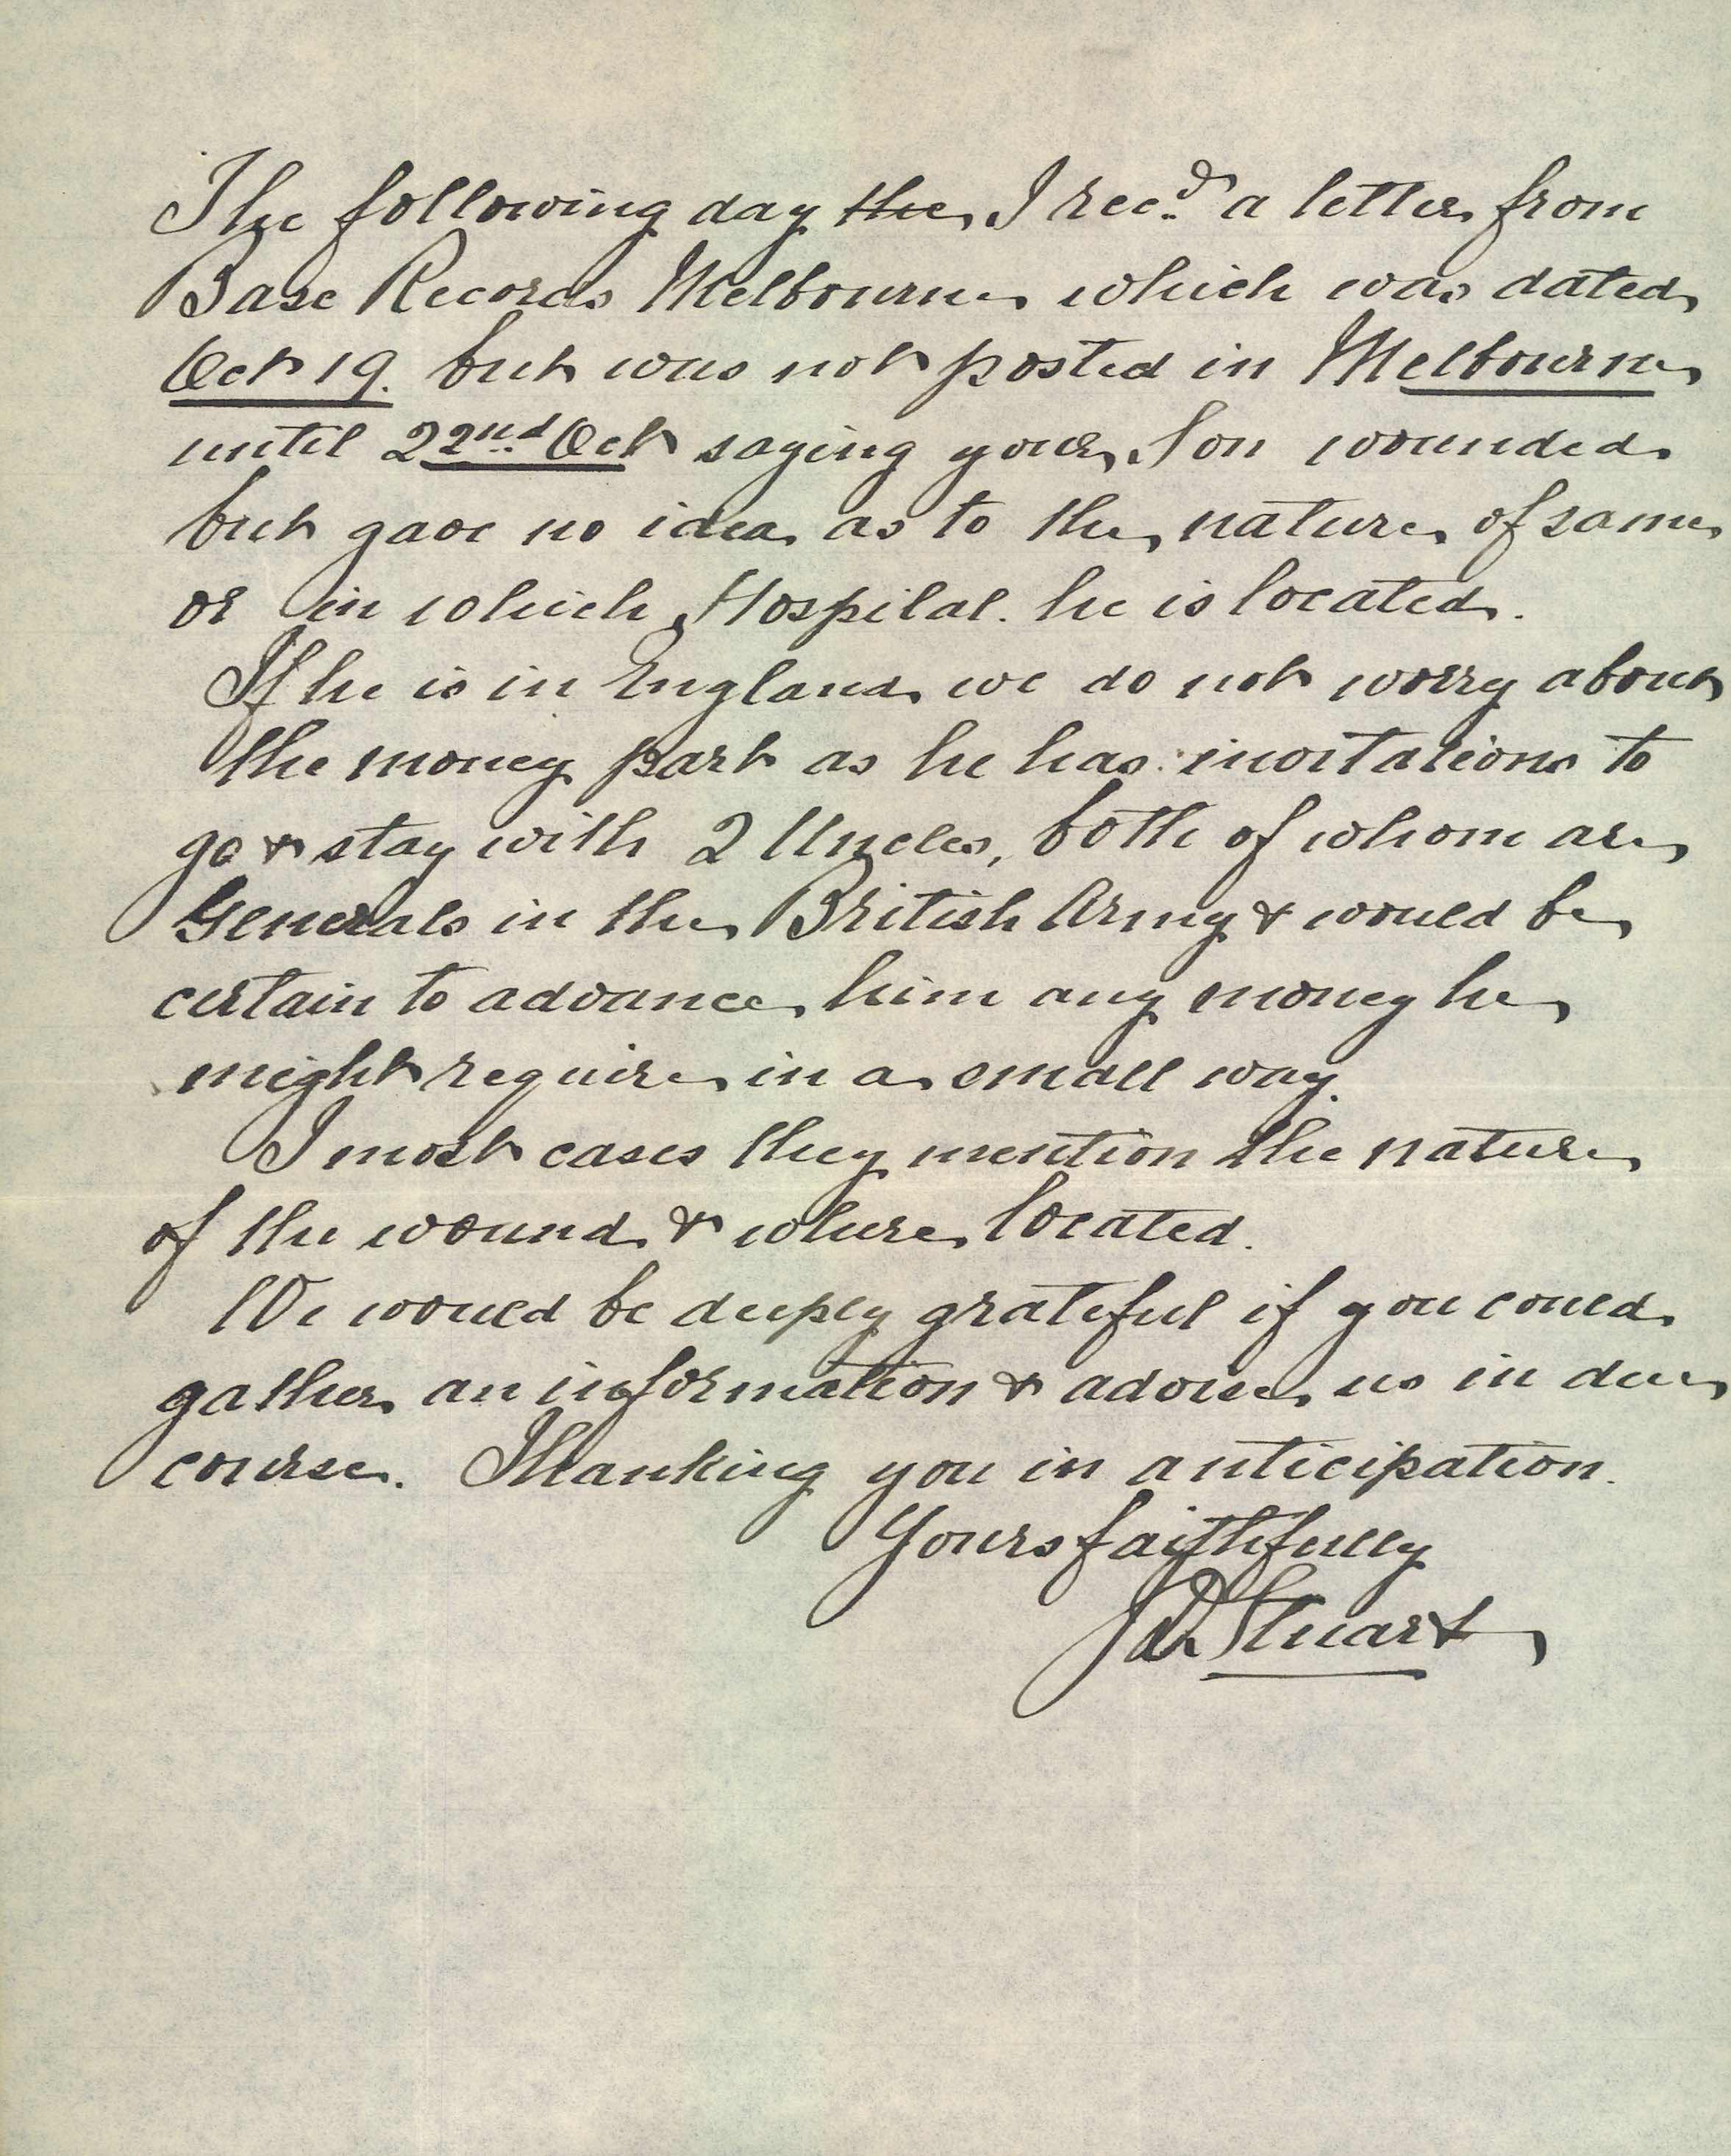 The following day the I recd. a letter from
Base Records Melbourne which was dated
Oct 19. but was not posted in Melbourne
until 22nd. Oct saying your Son wounded
but gave no idea as to the nature of same
or in which Hospital. he is located.
If he is in England we do not worry about
the money part as he has invitations to
go & stay with 2 Uncles, both of whom are
Generals in the British Army & would be
certain to advance him any money he
might require in a small way.
I most cases they mention the nature
of the wound & where located.
We would be deeply grateful if you could
gather an information & advise us in due
course. Thanking you in anticipation.
Yours faithfully
Stuart